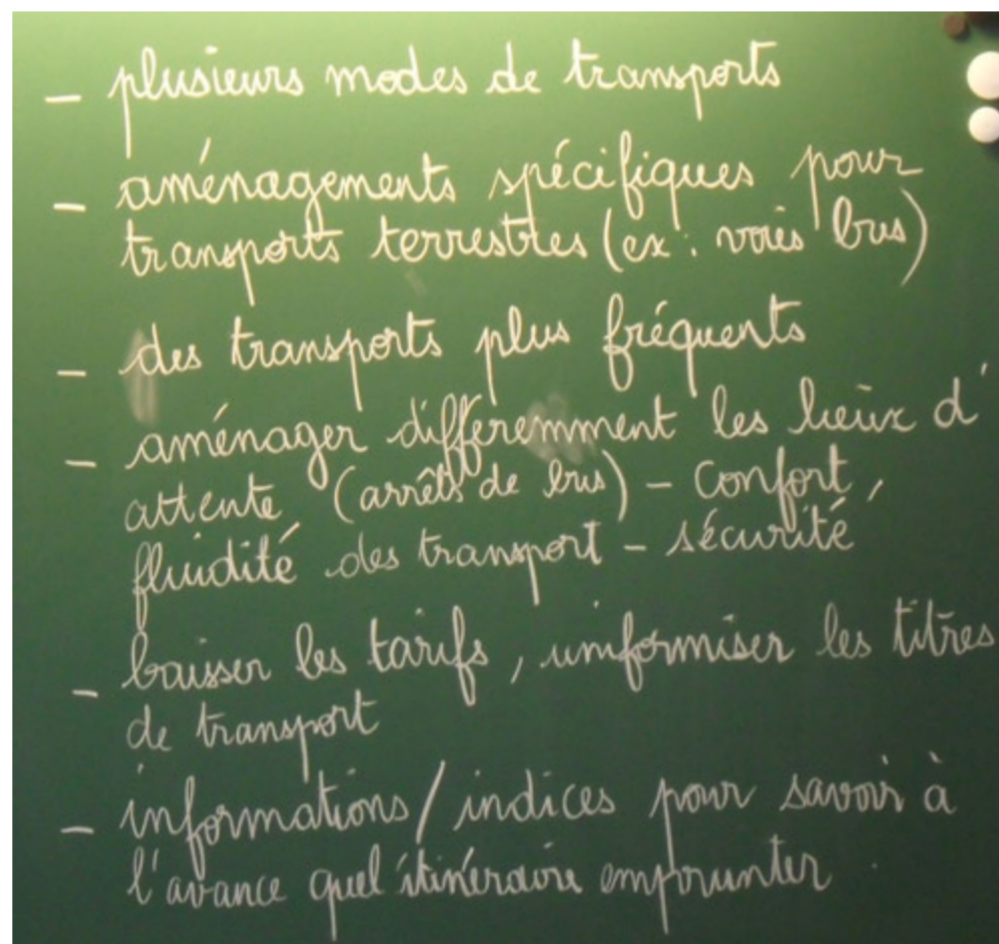 - plusieurs modes de transports
- aménagements spécifiques pour
transports terrestres (ex : voies bus)
- des transports plus fréquents
- aménager différemment les lieux d'
attente (arrêts de bus) - confort,
fluidité des transport - sécurité
- baisser les tarifs, uniformiser les titres
de transport
- informations / indices pour savoir à
l'avance quel itinéraire emprunter